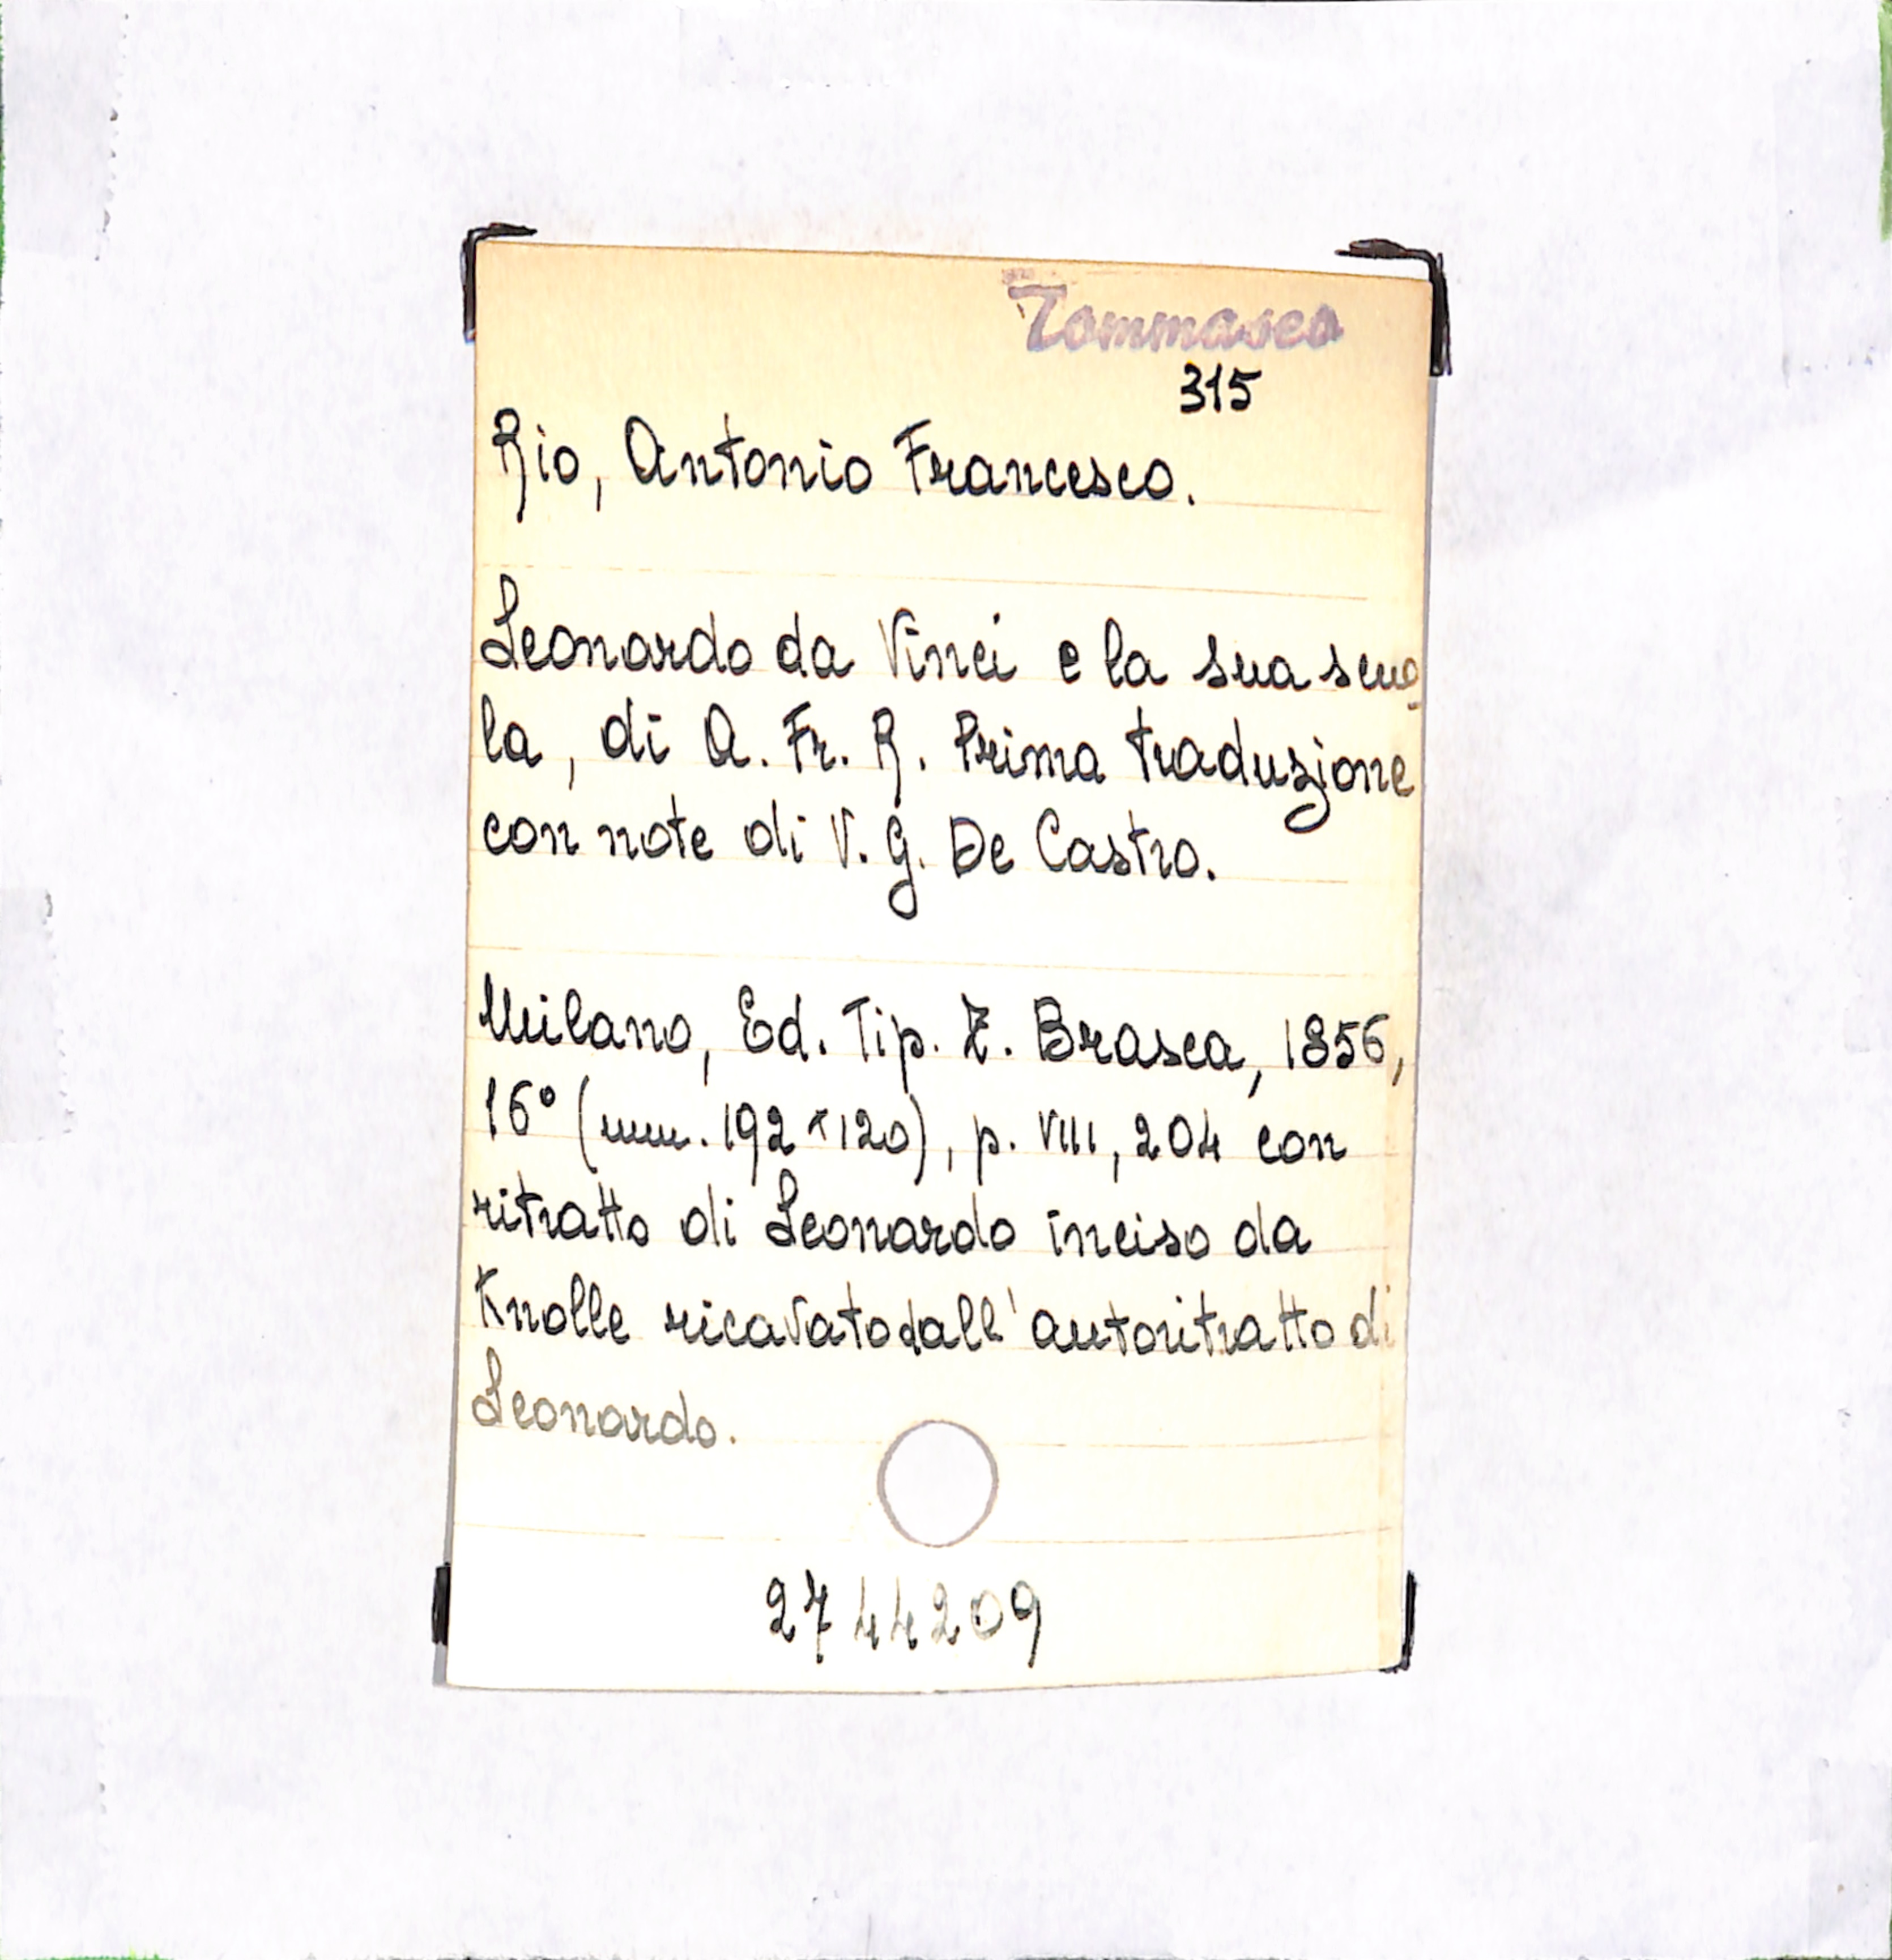 Tommaseo
315
Rio, Antonio Francesco.
Leonardo da Vinci e la sua scuo
la, di A. Fr. R. Prima traduzione
con note di V. G. De Castro.
Milano, Ed. Tip. Z. Brasca, 1856,
16° (mm. 192 x 120), p. VIII, 204 con
ritratto di Leonardo inciso da
Knolle ricavato dall'autoritratto di
Leonardo.
2744209